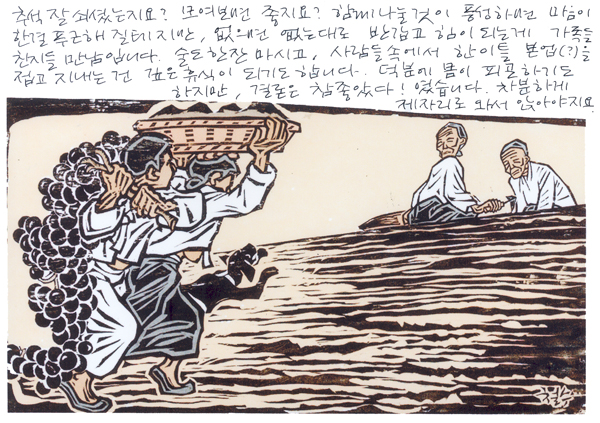 추석 잘 쇠셨는지요? 모여보니 좋지요? 함께 나눌것이 풍성하면 마음이
한결 푸근해 질테지만, 없으면 없는대로 반갑고 힘이 되는게 가족들
친지들 만남입니다. 술도 한잔 마시고, 사람들 속에서 한이틀 본업(?)을
접고 지내는 건 깊은 휴식이 되기도 합니다. 덕분에 몸이 피곤하기도
하지만, 결론은 참 좋았다! 였습니다. 차분하게
제자리로 와서 앉아야지요.
철수